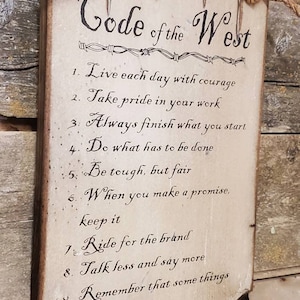 Code of the West
1. Live each day with courage
2. Take pride in your work
3. Always finish what you start
4. Do what has to be done
5. Be tough, but fair
6. When you make a promise,
keep it
7. Ride for the brand
8. Talk less and say more
Remember that some things